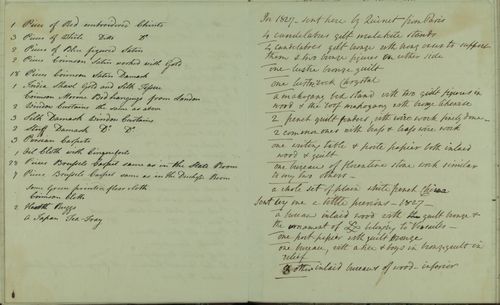 1 Piece of Red embroidered Chintz
3 Pieces of White Ditto Do
2 Pieces of Blue figured Satin
2 Pieces Crimson Satin worked with Gold
18 Pieces Crimson Satin Damask
1 India Shawl Gold and Silk Tissue
Crimson Morine Bed hangings from London
2 Window Curtains the same as above
3 Silk Damask Window Curtains
2 Stuff Damask Do Do
3 Persian Carpets
Felt Cloth with
23 Pieces Brussels Carpet same as in the State Room
7 Pieces Brussels Carpet same as in the Duchess Room
Some Green floor Cloth
Crimson Cloth
2 Hearth Ruggs
A Japan Tea Tray
In 1827. sent here by Quinet from Paris
4 candelabras gilt malachite stands
4 candelabras gilt bronze with bronze to support
them & two bronze figures on either side
one lustre bronze guilt
one crystal
a mahogany bed stand with two guilt figures in
wood & the roof mahogany with bronze
2 french guilt fenders with wire work
2 common ones with brass & wire work
one writing table & porte papier both inlaid
wood & guilt
one bureau of florentine stone work similar
to my two others
a whole set of plain white french China
Sent by me a little previous - 1827 -
a bureau inlaid wood with guilt bronze &
the ornament of belonging to
one port papier with guilt bronze
one bureau, with a & boys in bronze guilt in
relief
3 other inlaid bureaus of wood inferior